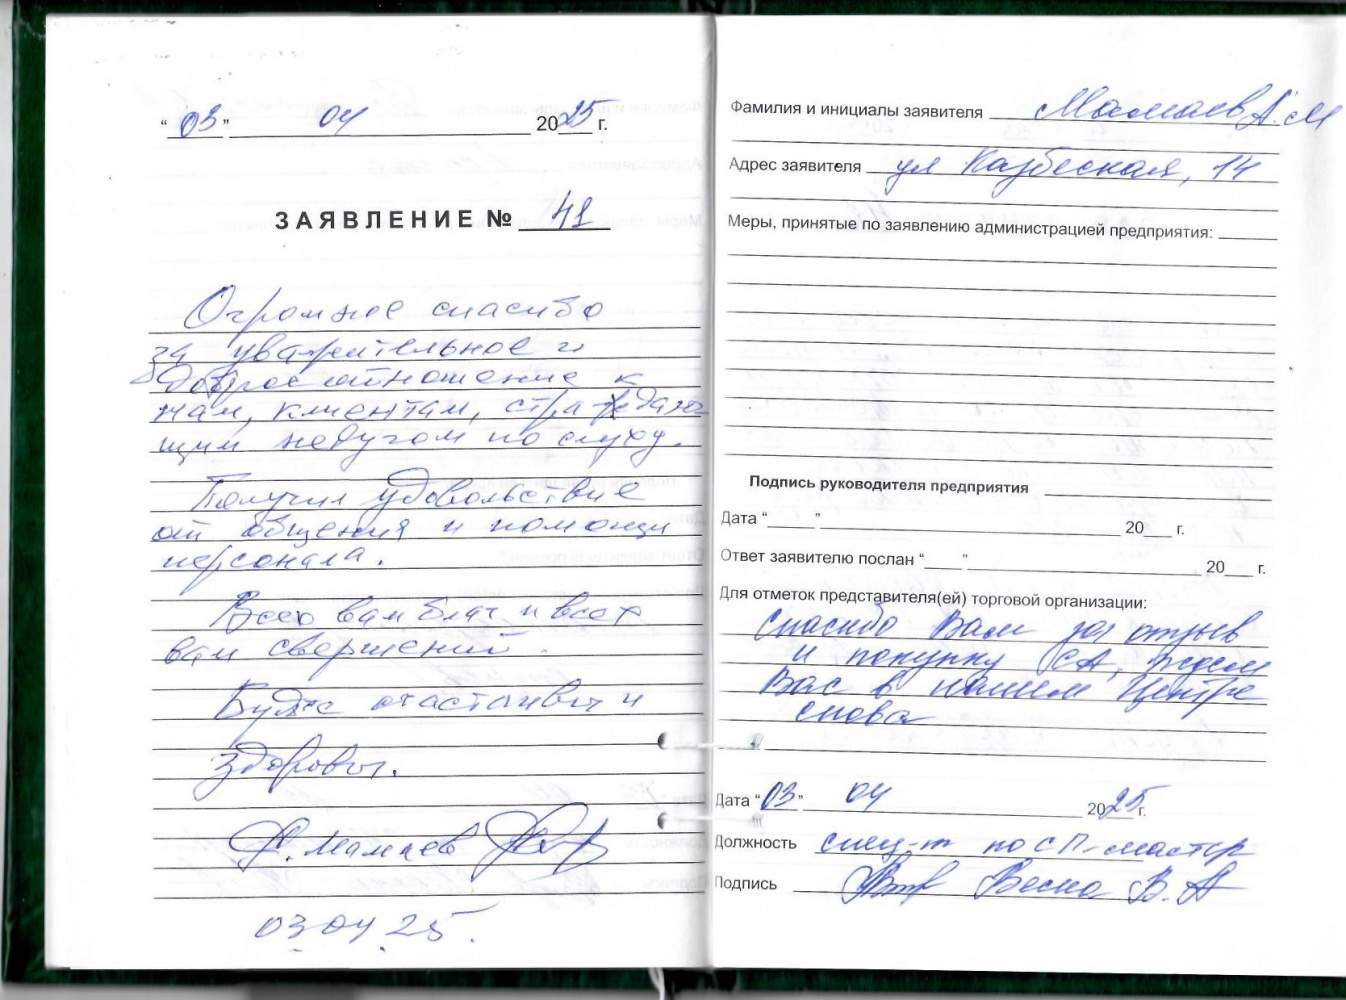 “03” 04 2025 г.
ЗАЯВЛЕНИЕ № 41
Огромное спасибо
за уважительное и
доброе отношение к
нам, клиентам, страдаю
щим недугом по слуху.
Получил удовольствие
от общения и помощи
персонала.
Всего вам благ и всех
вам свершений.
Будьте счастливы и
здоровы.
А. Мамаев
03.04.25.
Фамилия и инициалы заявителя Мамаев А.М
Адрес заявителя ул Казбеская, 14
Меры, принятые по заявлению администрацией предприятия:
Подпись руководителя предприятия
Дата “ ” 20 г.
Ответ заявителю послан “ ” 20 г.
Для отметок представителя(ей) торговой организации:
Спасибо Вам за отзыв
и покупку СА, ждем
Вас в нашем Центре
снова
Дата “03” 04 2025 г.
Должность спец-т по СП-мастер
Подпись В. А